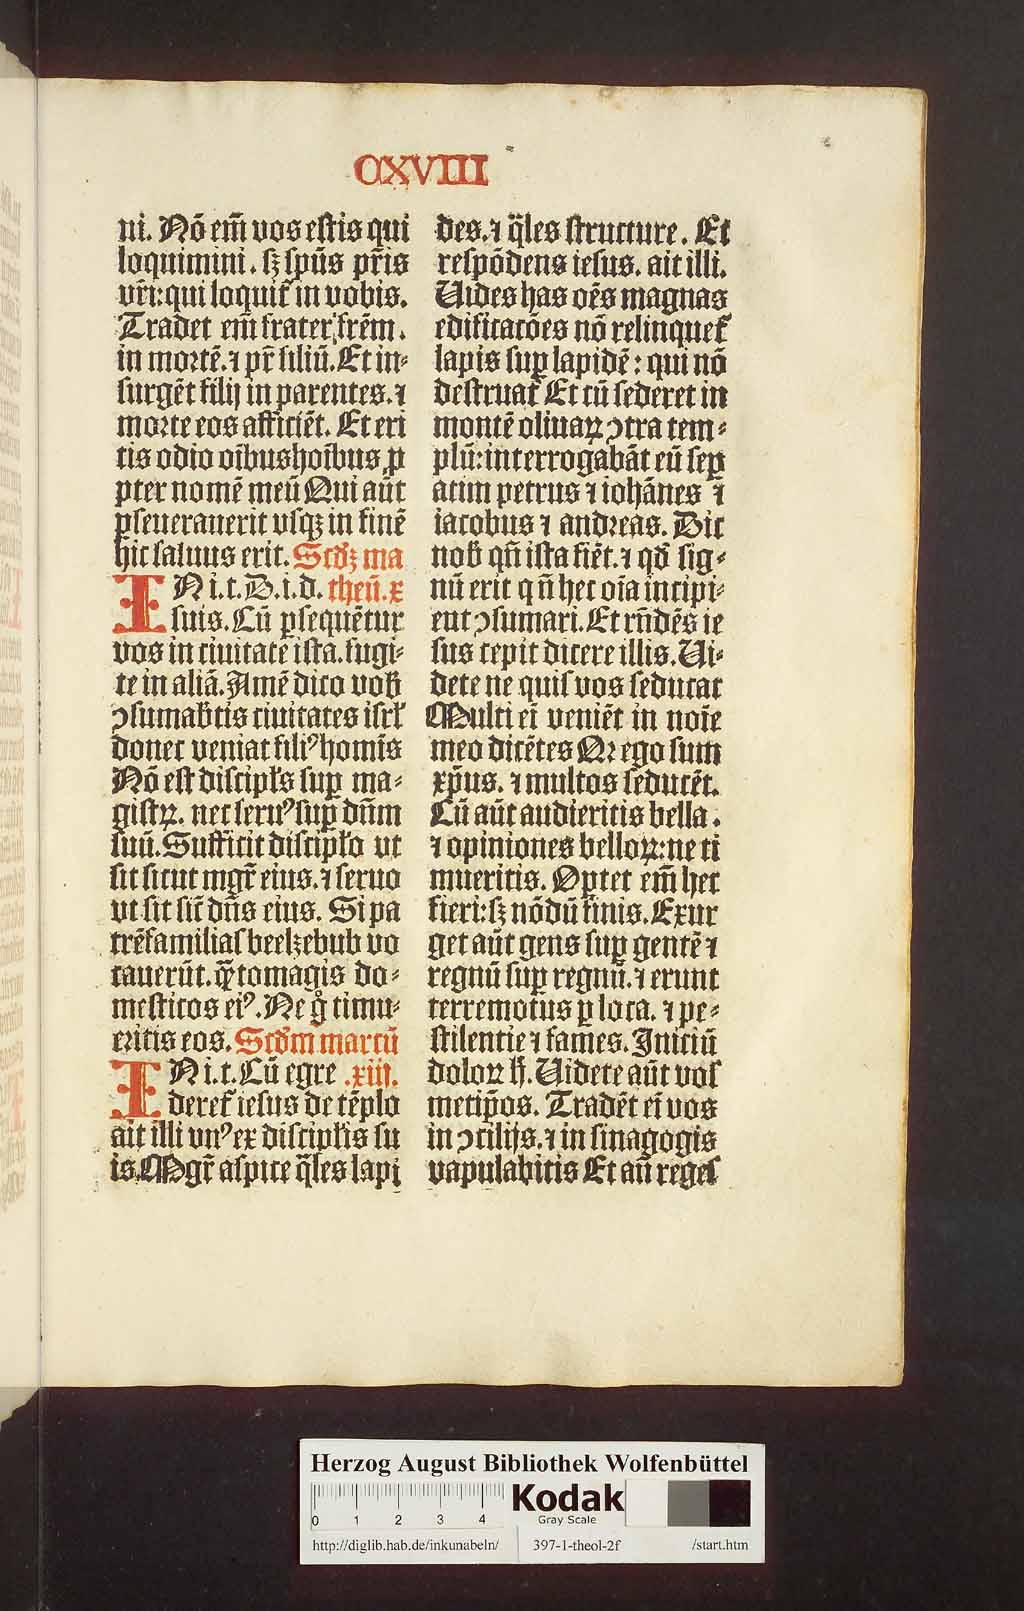 CXVIII
ni. Nō em̄ vos estis qui
loquimini. sꝫ spūs pr̄is
vr̄i: qui loquit᷑ in vobis.
Tradet em̄ frater frēm.
in mortē. ⁊ pr̄ filiū. Et in⸗
surgēt filij in parentes. ⁊
morte eos afficiēt. Et eri
tis odio oībus hoībus ꝓ
pter nomē meū Qui aūt
ꝑseuerauerit vsqꝫ in finē
hic saluus erit. Scdꝫ ma
INi.t.D.i.d. theū.x
suis. Cū ꝑsequētur
vos in ciuitate ista. fugi⸗
te in aliā. Amē dico vob̄
ꝯsumab̄tis ciuitates isrł
donec veniat filiꝰ homīs
Nō est discipłs suꝑ ma⸗
gistꝝ. nec seruꝰ suꝑ dn̄m
suū. Sufficit discipło vt
sit sicut mgr̄ eius. ⁊ seruo
vt sit sic̄ dn̄s eius. Si pa
trēfamilias beelzebub vo
cauerūt. q̄tomagis do⸗
mesticos eiꝰ. Ne gͦ timu⸗
eritis eos. Scdm̄ marcū
INi.t. Cū egre .xiij.
deret᷑ iesus de tēplo
ait illi vnꝰ ex discipłis su
is. Mgr̄ aspice q̄les lapi
des. ⁊ q̄les structure. Et
respōdens iesus. ait illi.
Uides has oēs magnas
edificatōes nō relinquet᷑
lapis suꝑ lapidē: qui nō
destruat᷑ Et cū sederet in
montē oliuaꝝ ꝯtra tem⸗
plū: interrogabāt eū seꝑ
atim petrus ⁊ iohānes ⁊̄
iacobus ⁊ andreas. Dic
nob̄ qn̄ ista fiēt. ⁊ qd̄ sig⸗
nū erit qn̄ hec oīa incipi⸗
ent ꝯsumari. Et rn̄dēs ie
sus cepit dicere illis. Ui⸗
dete ne quis vos seducat
Multi ei veniēt in noīe
meo dicētes Qꝛ ego sum
xp̄us. ⁊ multos seducēt.
Cū aūt audieritis bella.
⁊ opiniones belloꝝ: ne ti
mueritis. Oꝑtet em̄ hec
fieri: sꝫ nōdū finis. Exur
get aūt gens suꝑ gentē ⁊
regnū suꝑ regnū. ⁊ erunt
terremotus ꝑ loca. ⁊ pe⸗
stilentie ⁊ fames. Iniciū
doloꝝ h̄. Uidete aūt vos
metip̄os. Tradēt ei vos
in ꝯcilijs. ⁊ in sinagogis
vapulabitis Et an̄ reges
Herzog August Bibliothek Wolfenbüttel
0 1 2 3 4
Kodak
Gray Scale
http://diglib.hab.de/inkunabeln/ 397-1-theol-2f /start.htm